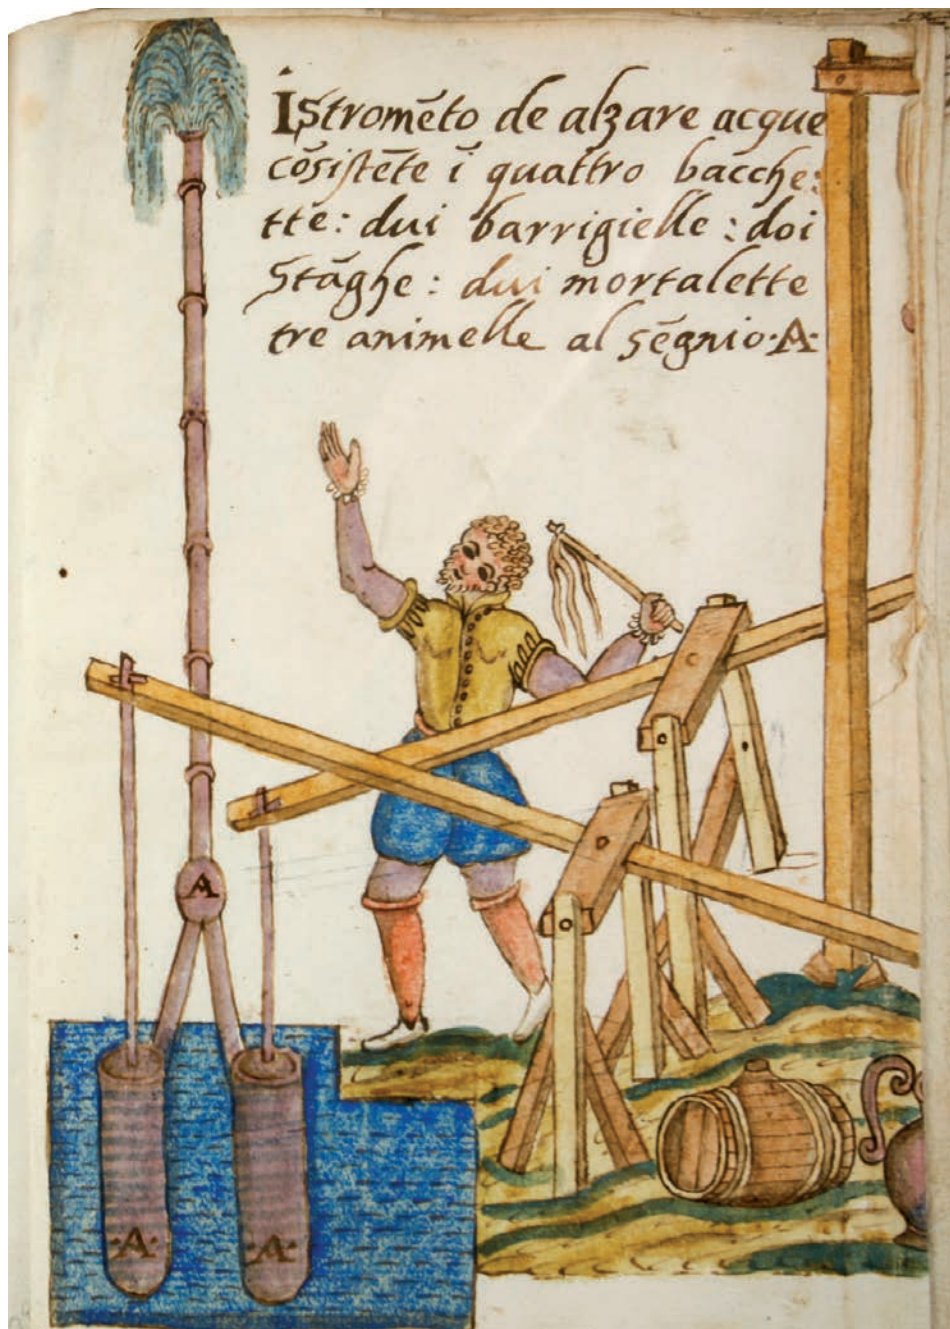 Istromēto de alzare acque
cōsistēte ī quattro bacche:
tte: dui barrigielle: doi
Stāghe: dui mortalette
tre animelle al sēgnio·A·
A
·A· ·A·